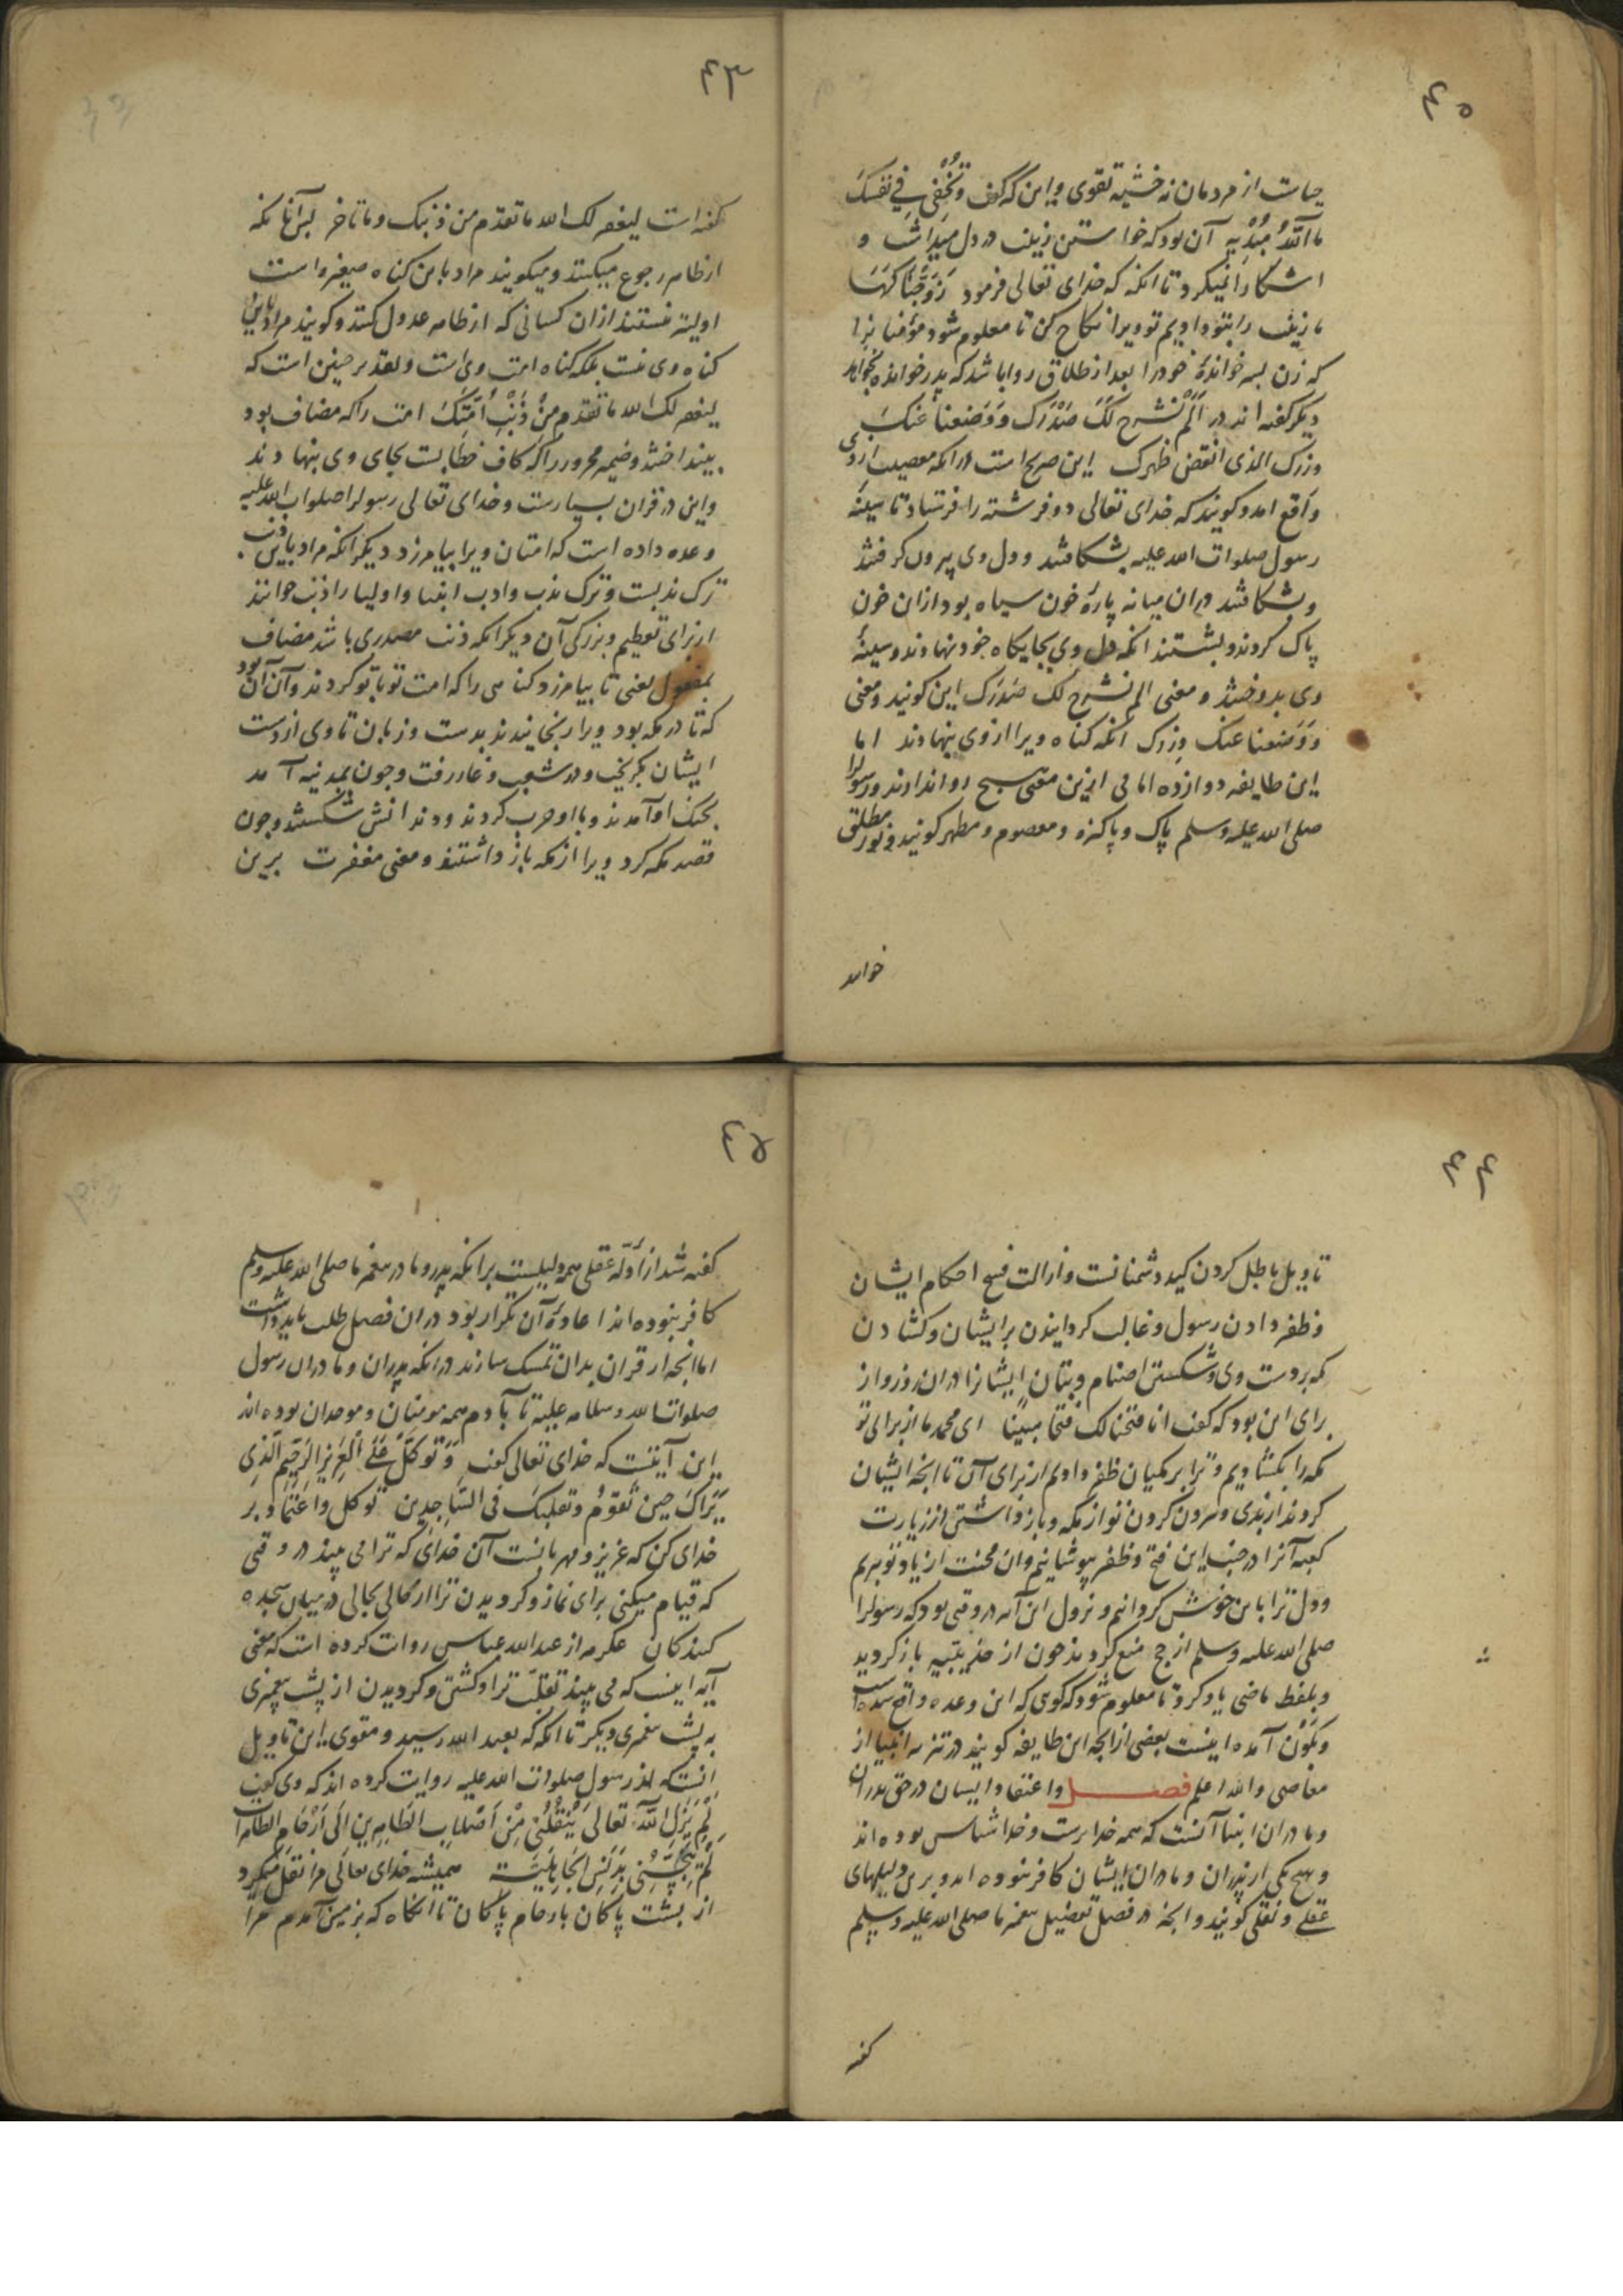 ۴۵
حیات از مردمان نه خشیة تقوی و این که گفت وَتُخْفِی فِی نَفْسِکَ
مَا اللّٰهُ مُبْدِیهِ آن بود که خواستن زینب در دل میداشت و
اشکارا نمیکرد تا انکه که خدای تعالی فرمود زَوَّجْنَاکَهَا
ما زینب را بتو دادیم تو ویرا نکاح کن تا معلوم شود مؤمنانرا
که زن پسر خوانده خود را بعد از طلاق روا باشد که پدر خوانده بخواهد
دیگر گفته اند در اَلَمْ نَشْرَحْ لَکَ صَدْرَکَ وَوَضَعْنَا عَنکَ
وزرک الذی انقض ظهرک این صریح است در انکه معصیت از وی
واقع امد و گویند که خدای تعالی دو فرشته را فرستاد تا سینه
رسول صلوات الله علیه بشکافتند و دل وی بیرون کرفتند
و بشکافتند در ان میانه پاره خون سیاه بود از ان خون
پاک کردند و بشستند انکه دل وی بجایکاه خود نهادند و سینه
وی بدوختند و معنی الم نشرح لک صدرک این گویند و معنی
وَوَضعنا عنک وِزرک انکه کناه ویرا از وی بنهادند اما
این طایفه دوازده امامی ازین معنی هیچ روا ندارند و رسولرا
صلی الله علیه وسلم پاک و پاکیزه و معصوم و مطهر گویند و نور مطلق
خوانند
۴۳
گفته است لیغفر لک الله ما تقدم من ذنبک و ما تاخر پس آنانکه
از ظاهر رجوع میکنند و میگویند مراد باین کناه صغیره است
اولیتر نیستند از ان کسانی که از ظاهر عدول کنند و گویند مراد باین
کناه وی نیست بلکه کناه امت وی است و تقدیر چنین است که
لیغفر لک الله ما تقدم مِنْ ذَنْبِ اُمَّتِکَ امت را که مضاف بود
بینداختند و ضمیر مجرور را که کاف خطابست بجای وی بنهادند
و این در قران بسیارست و خدای تعالی رسولرا صلوات الله علیه
وعده داده است که امتان ویرا بیامرزد دیگر انکه مراد باین ذنب
ترک ندبست و ترک ندب و ادب انبیا و اولیا را ذنب خوانند
از برای تعظیم و بزرکی آن دیگر انکه ذنب مصدری باشد مضاف
بمفعول یعنی تا بیامرزد کناهی را که امت تو با تو کردند و آن آن بود
که تا در مکه بود ویرا رنجانیدند بدست و زبان تا وی از دست
ایشان بگریخت و در شعب و غار رفت و چون بمدینه آمد
بجنک او آمدند و با او حرب کردند و دندانش شکستند و چون
قصد مکه کرد ویرا از مکه باز داشتند و معنی مغفرت برین
۴۴
تاویل باطل کردن کید دشمنانست و ازالت فسخ احکام ایشان
و ظفر دادن رسول و غالب کردانیدن بر ایشان و کشادن
مکه بر دست وی و شکستن اصنام و بتان ایشانرا در ان روز و از
برای این بود که گفت انا فتحنا لک فتحا مبینًا ای محمد ما از برای تو
مکه را بکشادیم و ترا بر مکیان ظفر دادیم از برای آن تا انچه ایشان
کردند از بدی و بیرون کردن تو از مکه و باز داشتن از زیارت
کعبه آنرا در جنب این فتح و ظفر بپوشانیم و ان محنت از یاد تو ببریم
و دل ترا باین خوش کردانیم و نزول این آیه در وقتی بود که رسولرا
صلی الله علیه وسلم از حج منع کردند چون از حدیبیه باز کردید
و بلفظ ماضی یاد کرد تا معلوم شود که گوی که این وعده واقع شده است
آمده اینست بعضی از انچه این طایفه گویند در تنزیه انبیا از
معاصی والله اعلم فصل و اعتقاد ایشان در حق پدران
و مادران انبیا آنست که همه خدا پرست و خدا شناس بوده اند
و هیچ یکی از پدران و مادران ایشان کافر نبوده اند و برین دلیلهای
عقلی و نقلی گویند و انچه در فصل تفضیل پیغمبر ما صلی الله علیه وسلم
گفته
۴۵
گفته شد از ادلّه عقلی همه دلیلست بر انکه پدر و مادر پیغمبر ما صلی الله علیه وسلم
کافر نبوده اند اعاده آن تکرار بود در ان فصل طلب باید داشت
اما انچه از قران بدان تمسک سازند در انکه پدران و مادران رسول
صلوات الله و سلامه علیه تا بآدم همه مومنان و موحدان بوده اند
این آیتست که خدای تعالی گفت وَتَوَکَّلْ عَلَی الْعَزِیزِ الرَّحِیمِ الَّذِی
یَرَاکَ حِینَ تَقُومُ وَتَقَلُّبَکَ فِی السَّاجِدِین توکل و اعتماد بر
خدای کن که عزیز و مهربانست آن خدای که ترا می بیند در وقتی
که قیام میکنی برای نماز و کردیدن ترا از حالی بحالی در میان سجده
کنندکان عکرمه از عبدالله عباس روایت کرده است که معنی
آیه اینست که می بیند تقلّب ترا و کشتن و کردیدن از پشت پیغمبری
به پشت پیغمبری دیگر تا انکه که بعبد الله رسید و مقوی این تاویل
انست که از رسول صلوات الله علیه روایت کرده اند که وی گفت
لَمْ یَزَلِ اللّٰهُ تعالی یَنْقُلُنِی مِنْ اَصْلَابِ الطَّاهِرِین اِلَی اَرْحَامِ الطاهرات
لَمْ یُنَجِّسْنِی بِدَنَسِ الجَاهِلِیَّة همیشه خدای تعالی مرا نقل میکرد
از پشت پاکان بارحام پاکان تا انگاه که بزمین آمدم مرا